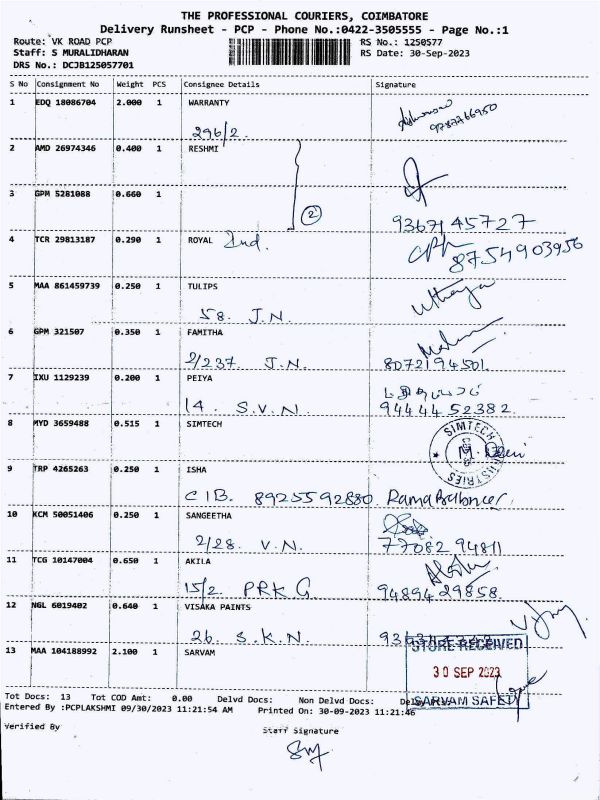 THE PROFESSIONAL COURIERS, COIMBATORE
Delivery Runsheet - PCP - Phone No.:0422-3505555 - Page No.:1
Route: VK ROAD PCP RS No.: 1250577
Staff: S MURALIDHARAN RS Date: 30-Sep-2023
DRS No.: DCJB125057701
S No Consignment No Weight PCS Consignee Details Signature
1 EDQ 18086704 2.000 1 WARRANTY
296/2
2 AMD 26974346 0.400 1 RESHMI
3 GPM 5281088 0.660 1
2
9367145727
4 TCR 29813187 0.290 1 ROYAL 2nd.
8754903956
5 MAA 861459739 0.250 1 TULIPS
58. J.N.
6 GPM 321507 0.350 1 FAMITHA
2/237 J.N. 8072194501.
7 IXU 1129239 0.200 1 PEIYA
14. S.V.N. 9444452382.
8 MYD 3659488 0.515 1 SIMTECH
SIMTECH INDUSTRIES
9 TRP 4265263 0.250 1 ISHA
CIB. 8925592880
10 KCM 50051406 0.250 1 SANGEETHA
2/28. V.N. 77082 94811
11 TCG 10147004 0.650 1 AKILA
15/2. PRK G 94894 29858
12 NGL 6019402 0.640 1 VISAKA PAINTS
26. S.K.N.
13 MAA 104188992 2.100 1 SARVAM
STORE RECEIVED
30 SEP 2023
SARVAM SAFETY
Tot Docs: 13 Tot COD Amt: 0.00 Delvd Docs: Non Delvd Docs:
Entered By :PCPLAKSHMI 09/30/2023 11:21:54 AM Printed On: 30-09-2023 11:21:46
Verified By
Staff Signature